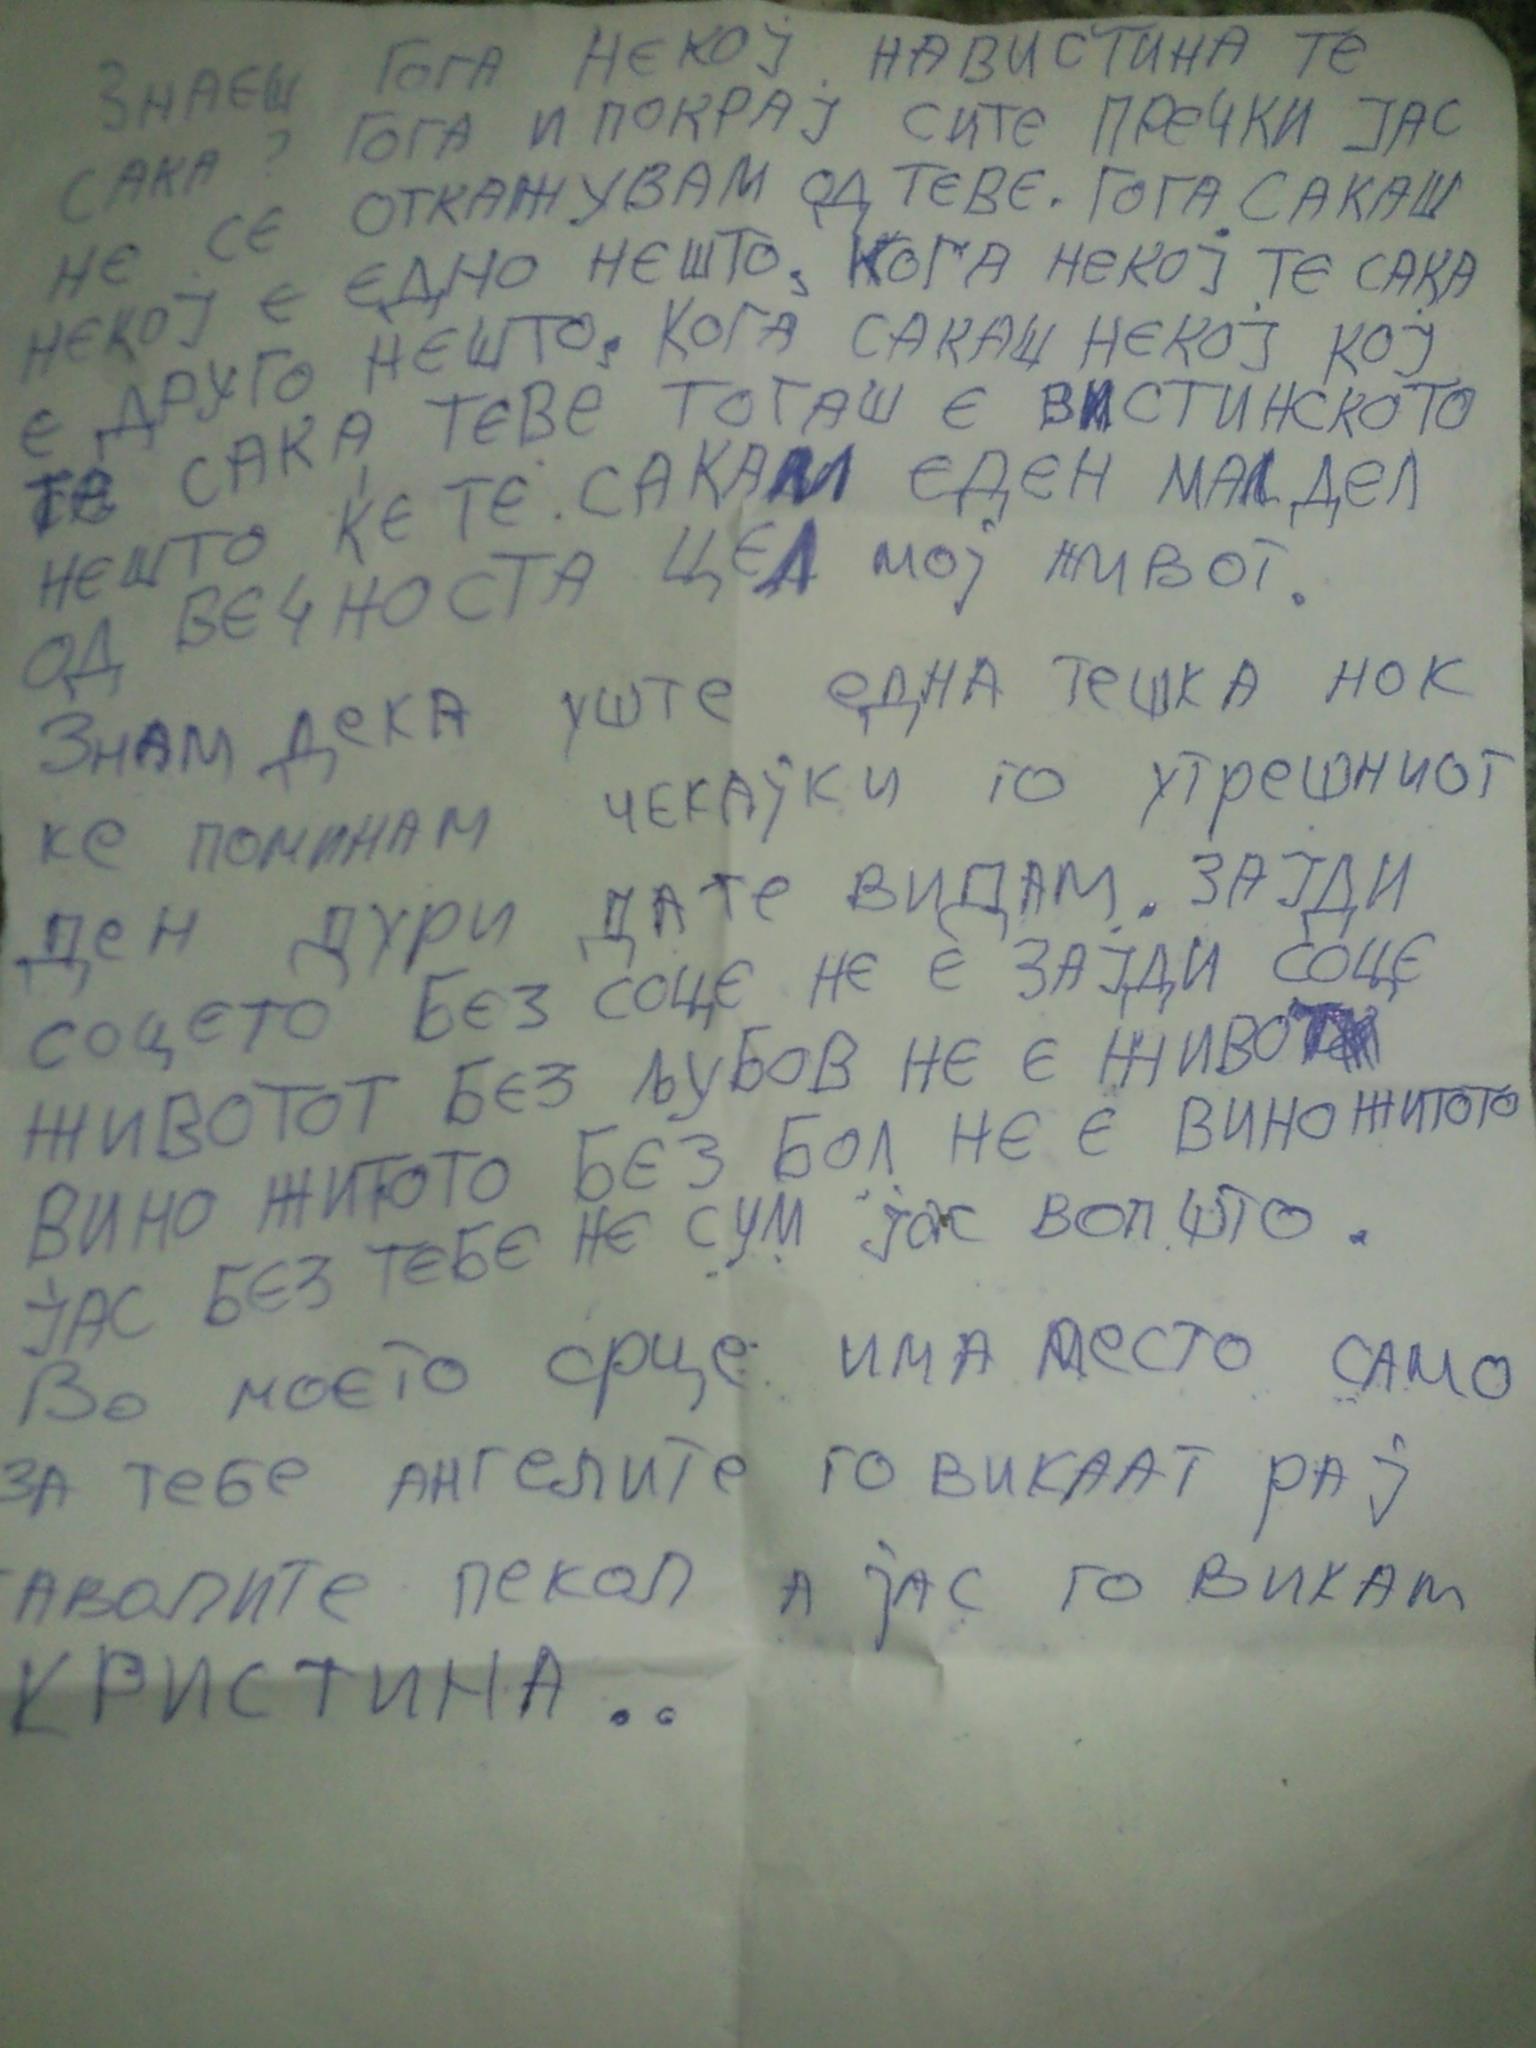 ЗНАЕШ ГОГА НЕКОЈ НАВИСТИНА ТЕ
САКА? ГОГА И ПОКРАЈ СИТЕ ПРЕЧКИ ЈАС
НЕ СЕ ОТКАЖУВАМ ОД ТЕВЕ. ГОГА САКАШ
НЕКОЈ Е ЕДНО НЕШТО, КОГА НЕКОЈ ТЕ САКА
Е ДРУГО НЕШТО. КОГА САКАШ НЕКОЈ КОЈ
ТЕ САКА ТЕВЕ ТОГАШ Е ВИСТИНСКОТО
НЕШТО ЌЕ ТЕ САКАМ ЕДЕН МАЛ ДЕЛ
ОД ВЕЧНОСТА ЦЕЛ МОЈ ЖИВОТ.
ЗНАМ ДЕКА УШТЕ ЕДНА ТЕШКА НОК
КЕ ПОМИНАМ ЧЕКАЈКИ ГО УТРЕШНИОТ
ДЕН ДУРИ ДА ТЕ ВИДАМ. ЗАЈДИ
СОЦЕТО БЕЗ СОЦЕ НЕ Е ЗАЈДИ СОЦЕ
ЖИВОТОТ БЕЗ ЉУБОВ НЕ Е ЖИВОТ
ВИНО ЖИТОТО БЕЗ БОЛ НЕ Е ВИНО ЖИТОТО
ЈАС БЕЗ ТЕБЕ НЕ СУМ ЈАС ВОПШТО.
ВО МОЕТО СРЦЕ ИМА МЕСТО САМО
ЗА ТЕБЕ АНГЕЛИТЕ ГО ВИКААТ РАЈ
ЃАВОЛИТЕ ПЕКОЛ А ЈАС ГО ВИКАМ
КРИСТИНА..